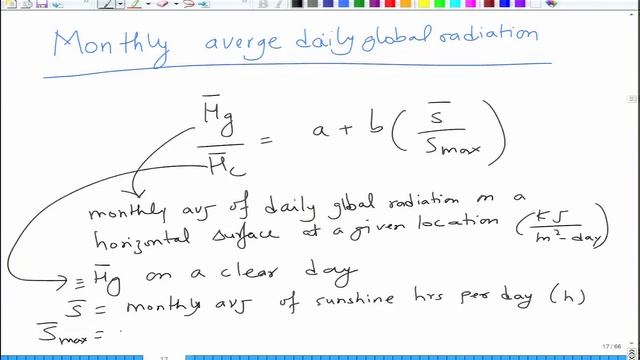 Monthly averge daily global radiation
H̅g / H̅c = a + b ( S̅ / Smax )
monthly avg of daily global radiation on a
horizontal surface at a given location ( KJ / m²-day )
≡ H̅g on a clear day
S̅ = monthly avg of sunshine hrs per day (h)
S̅max =
17
17 / 66